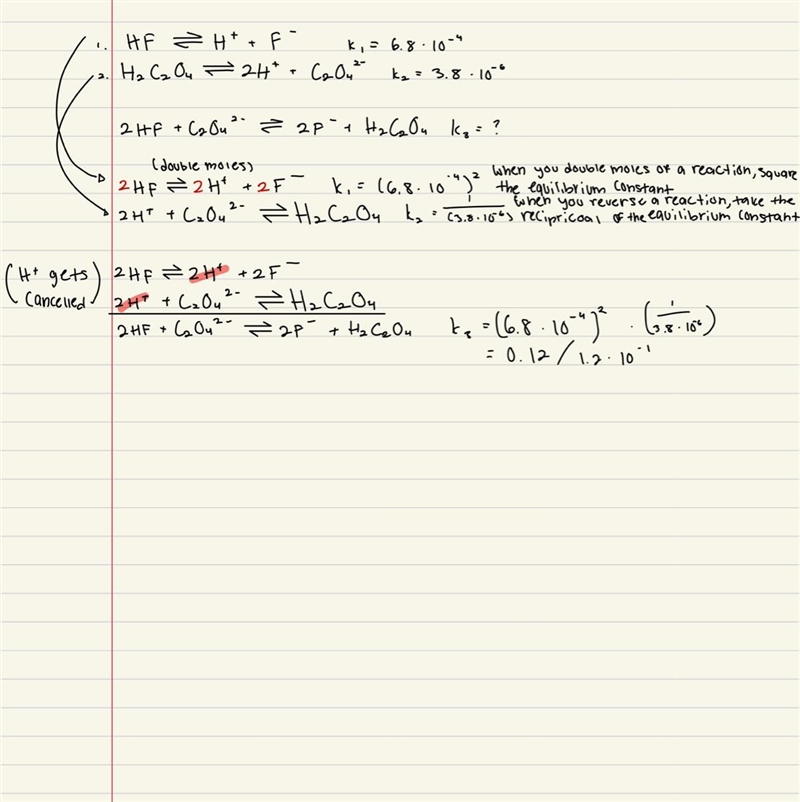 1. HF ⇌ H⁺ + F⁻ k₁ = 6.8 · 10⁻⁴
2. H₂C₂O₄ ⇌ 2H⁺ + C₂O₄²⁻ k₂ = 3.8 · 10⁻⁶
2HF + C₂O₄²⁻ ⇌ 2F⁻ + H₂C₂O₄ k₃ = ?
(double moles)
2HF ⇌ 2H⁺ + 2F⁻ k₁ = (6.8 · 10⁻⁴)² When you double moles of a reaction, square the equilibrium constant
2H⁺ + C₂O₄²⁻ ⇌ H₂C₂O₄ k₂ = 1/(3.8 · 10⁻⁶) When you reverse a reaction, take the recipricoal of the equilibrium constant
(H⁺ gets cancelled) 2HF ⇌ 2H⁺ + 2F⁻
2H⁺ + C₂O₄²⁻ ⇌ H₂C₂O₄
2HF + C₂O₄²⁻ ⇌ 2F⁻ + H₂C₂O₄ k₃ = (6.8 · 10⁻⁴)² · (1/3.8 · 10⁻⁶)
= 0.12 / 1.2 · 10⁻¹